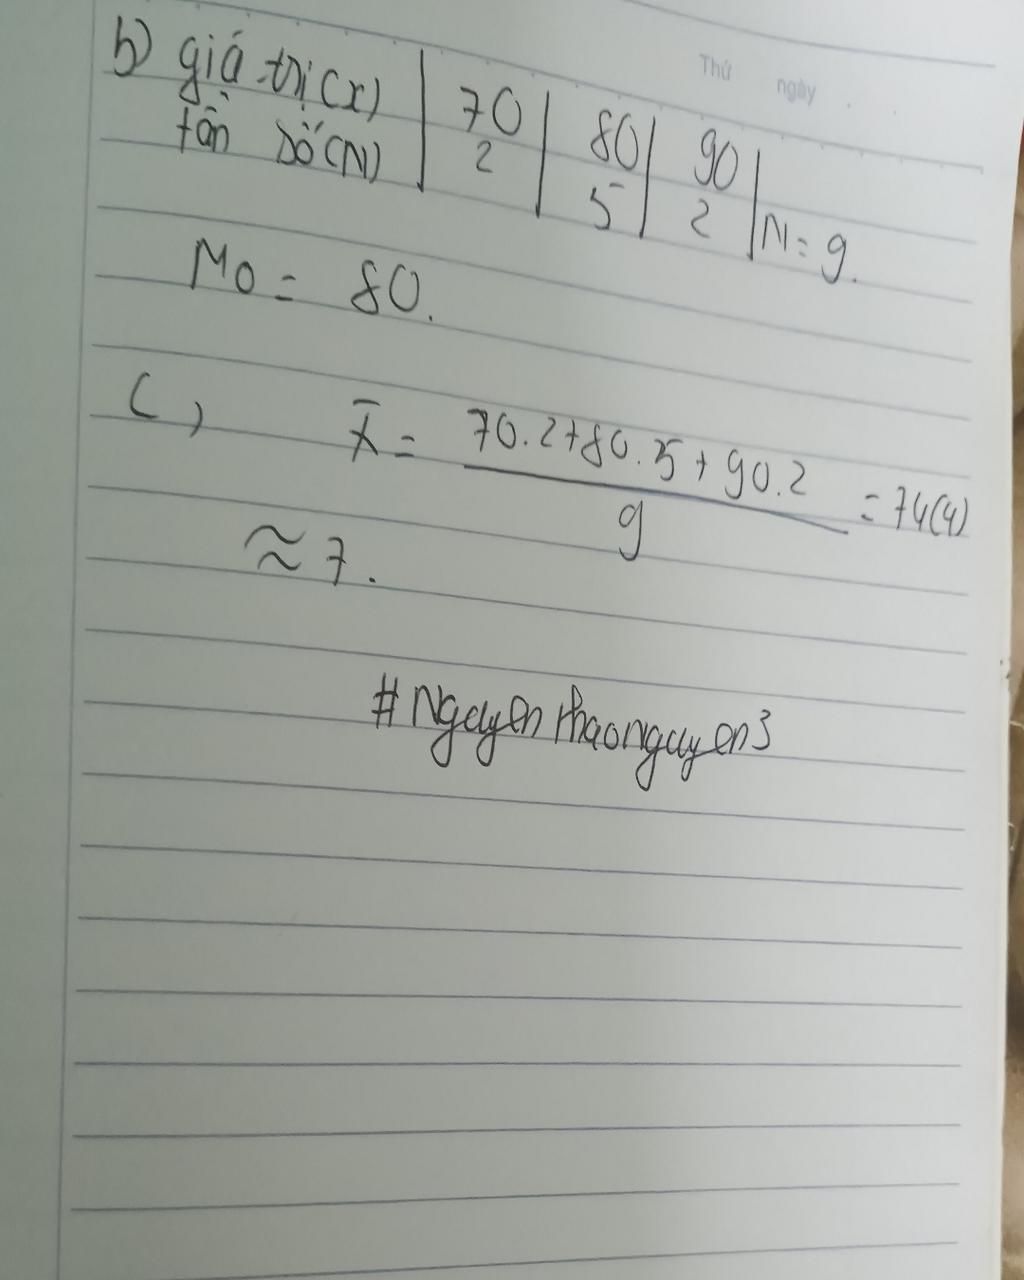 Thứ ngày
b) giá trị (x) | 70 | 80 | 90 |
tần số (N) | 2 | 5 | 2 | N = 9.
M0 = 80.
c, X̄ = (70.2+80.5+90.2)/9 = 74(4)
≈ 7.
#Nguyenthaonguyen3